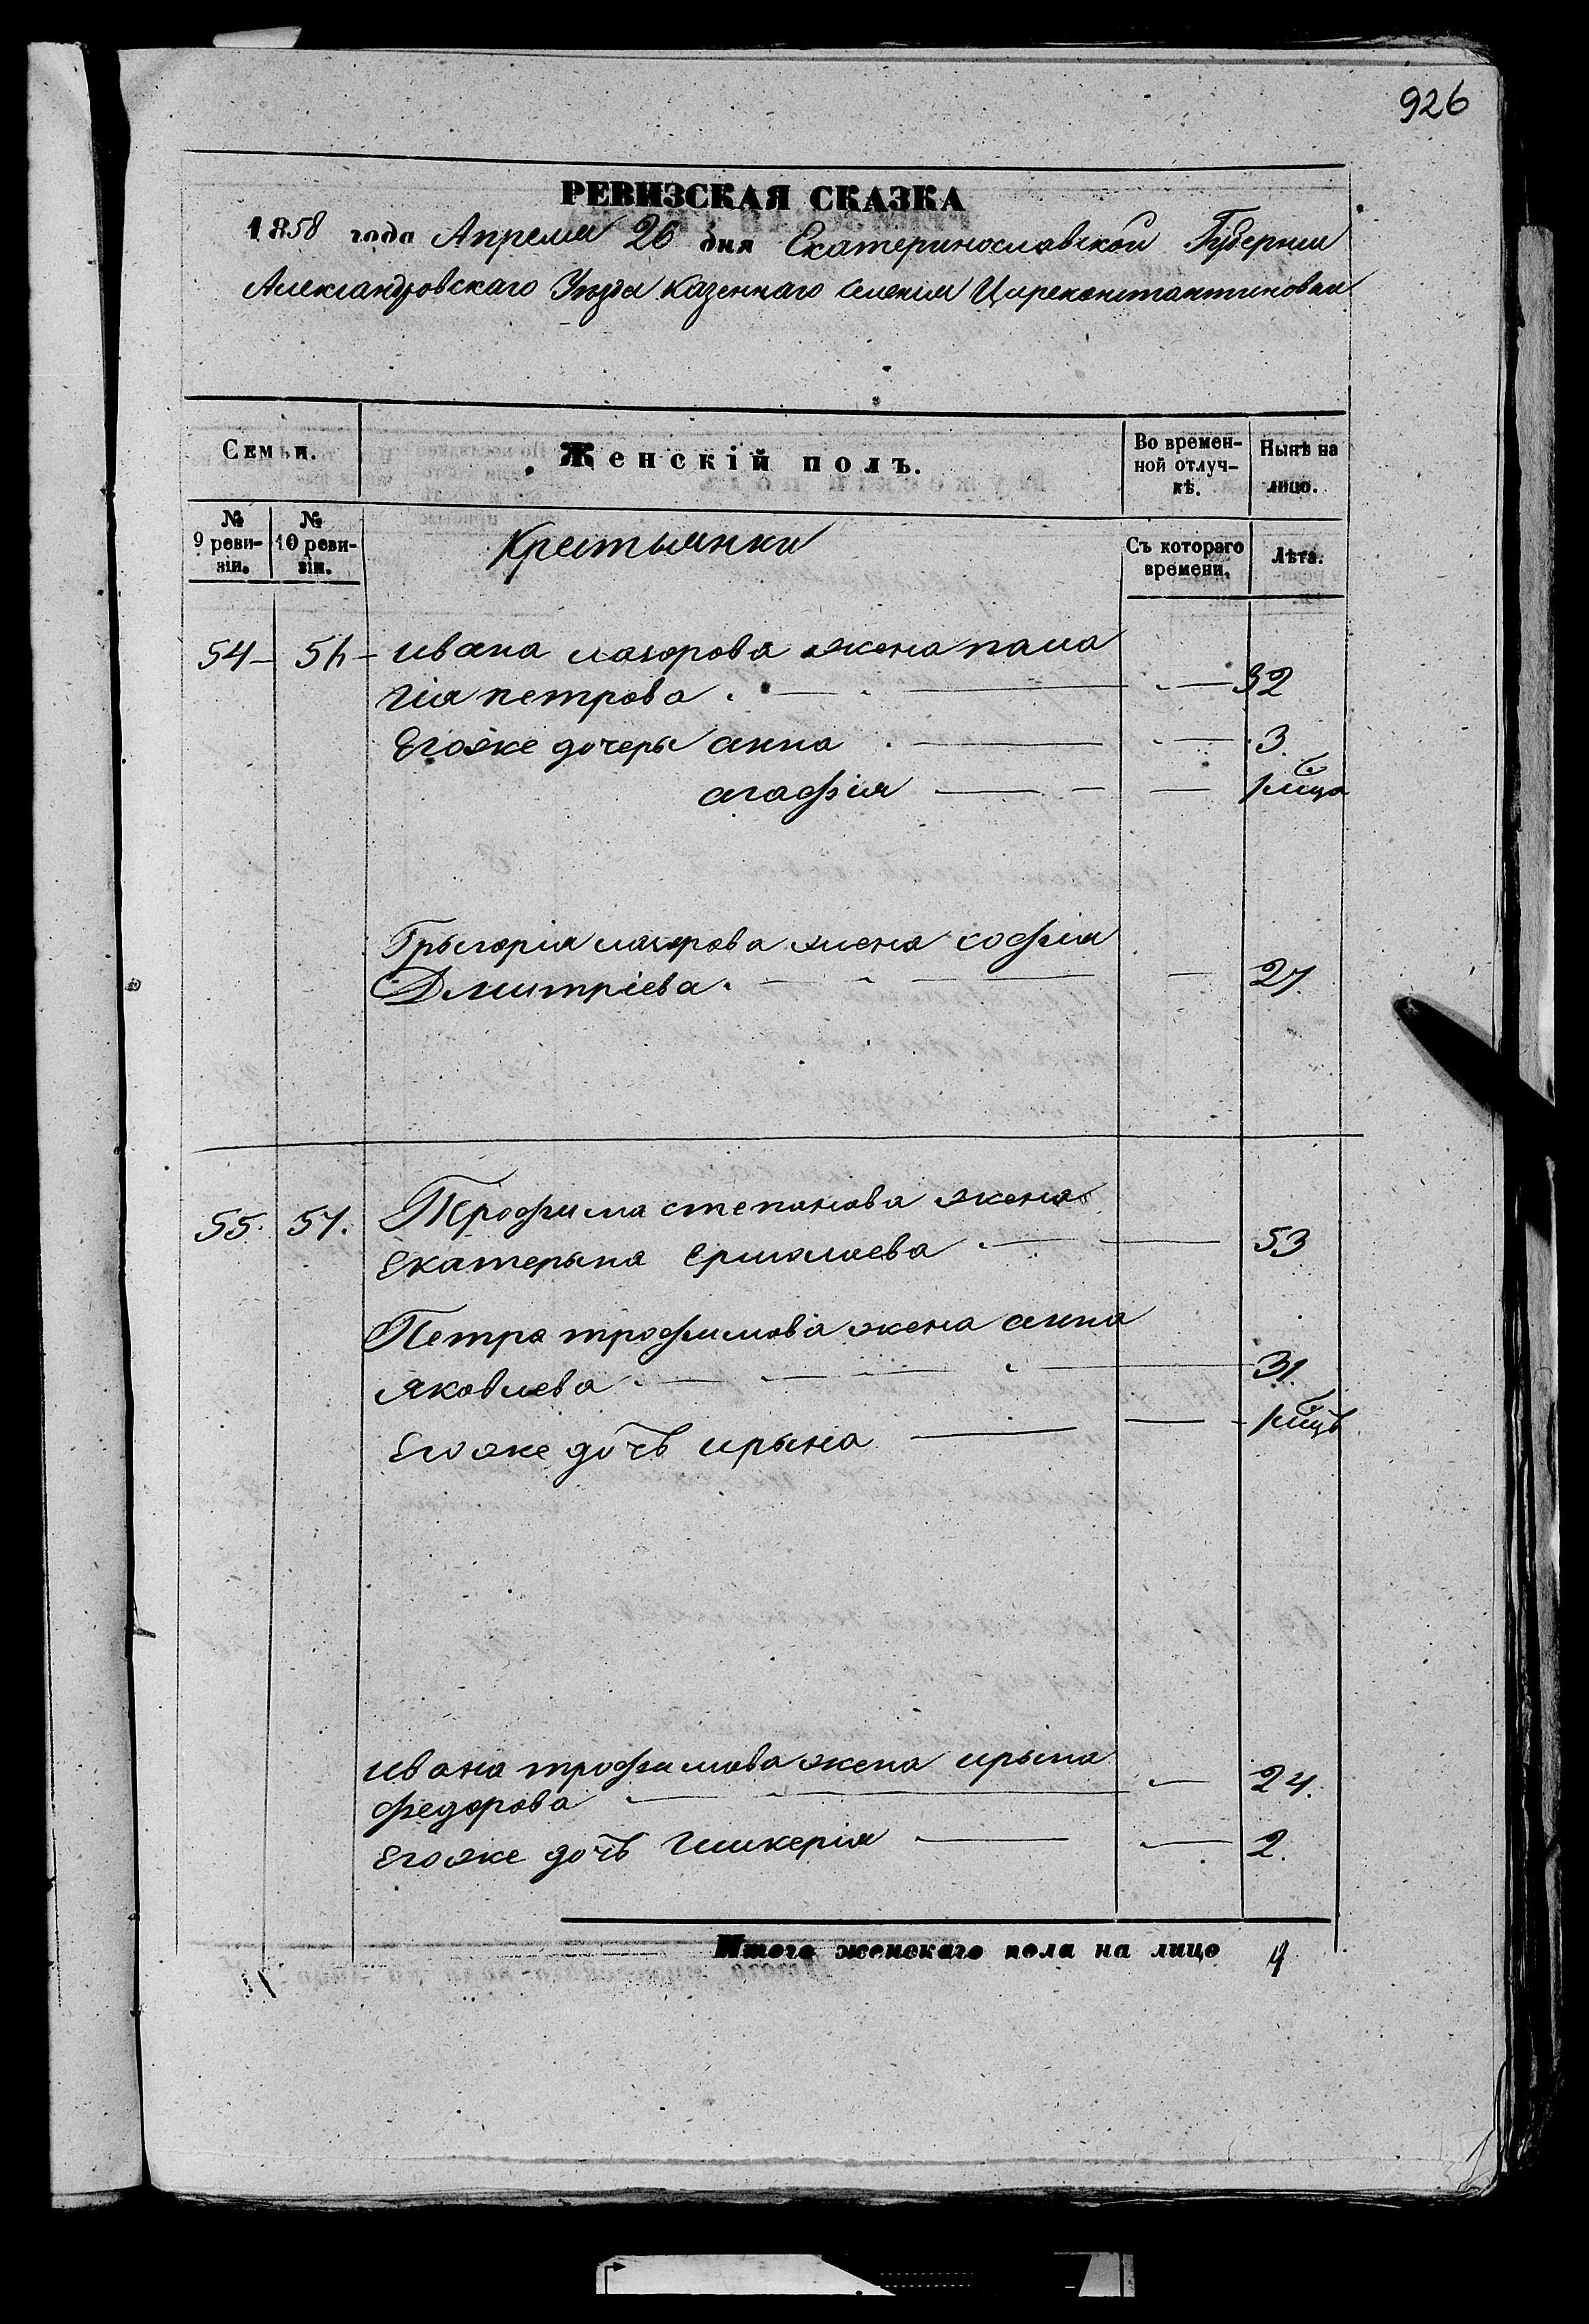 926
РЕВИЗСКАЯ СКАЗКА
1858 года Апреля 26 дня Екатеринославской Губернии
Александровскаго Уезда казеннаго селенія Цареконстантиновки
Семьи.
Женскій полъ.
Во времен-
ной отлуч-
кѣ.
Нынѣ на
лицо.
№
9 реви-
зіи.
№
10 реви-
зіи.
Крестьянки
Съ котораго
времени.
Лѣта.
54 56 ивана лазорова жена пала
гія петрова 32
Егоже дочеры анна 3
агафія
Грыгорія лазорова жена софія
Дмитріева. 27.
55. 57. Трофима степанова жена
Екатерына Ермолаева 53
Петра трофимова жена анна
яковлева 31
Егоже дочъ ирына
ивана трофимова жена ирына
федорова 24.
Егоже дочъ Гликерія 2.
Итого женскаго пола на лицо 9